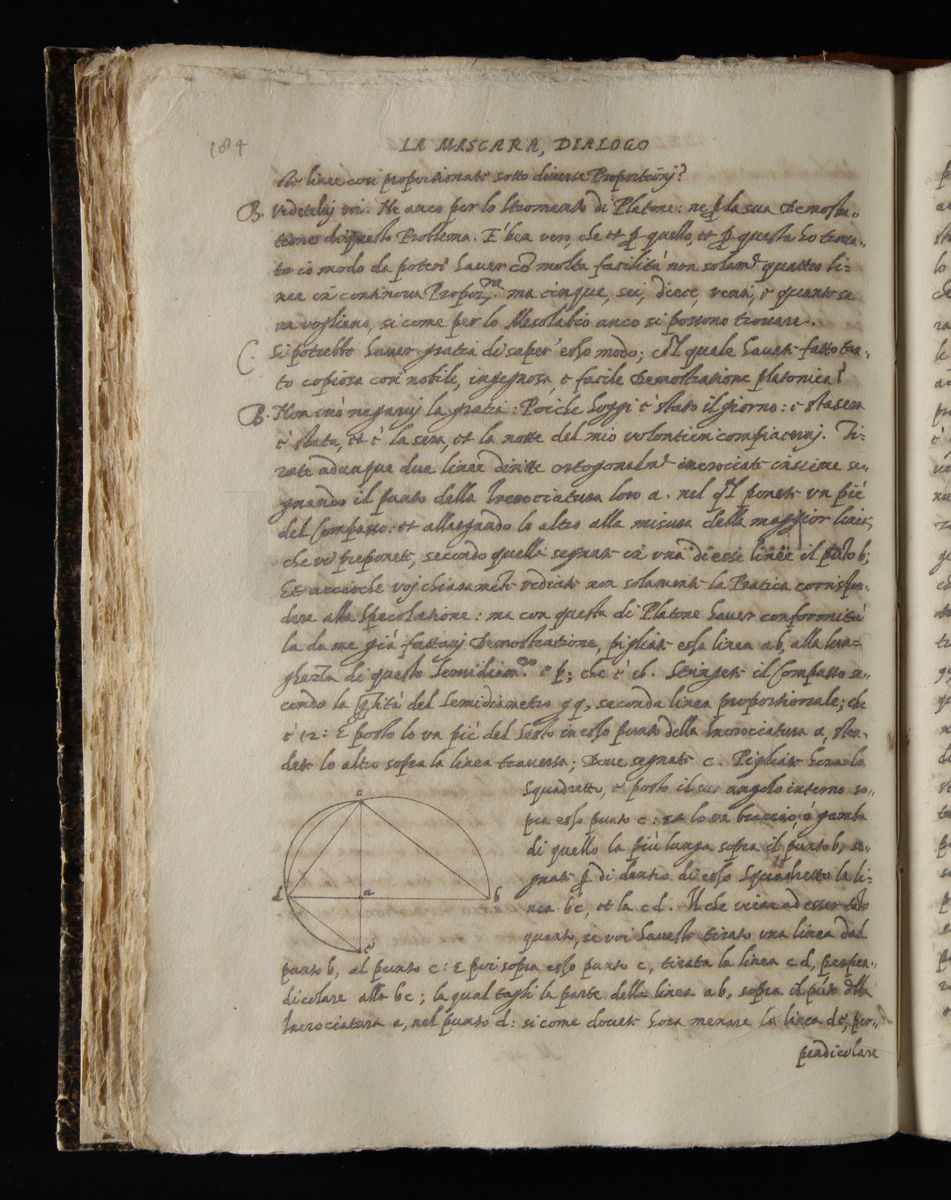 184
LA MASCARA, DIALOGO
linee così proportionate sotto diuerse Proportionj?
B. Vedetelej voi. Ne anco per lo stromento di Platone: ne ꝑ la sua Demostra-
tione di questo Problema. E' ben vero, che et ꝑ quello, et ꝑ questa ho tenu-
to modo da poter' hauer cō molta facilità non solam.te quattro li-
nee in continoua Propor.ne ma cinque, sei, diece, venti, e quante se
ne vogliano, si come per lo Mesolabio anco si possono trouare.
C. Si potrebbe hauer gratia di saper' esso modo; col quale hauete fatto tan-
to copiosa così nobile, ingegnosa e facile Demostratione platonica?
B. Non vuò negaruj la gratia: Poiche hoggi è stato il giorno: e stasera
è stata, et è la sera, et la notte del mio volontieri compiacerui. Ti-
rate adunque due linee diritte ortogonalm.te incrociate insieme se-
gnando il punto della Incrociatura loro a. nel q̄l ponete vn piè
del Compasso: et allargando lo altro alla misura della maggior linea,
che vi preponete, secondo quella segnate in vna di esse linee il pūto b;
Et accioche voj chiaramente vediate non solamente la Pratica corrispon-
dere alla Speculatione: ma con questa di Platone hauer conformità
la da me già fattauj Demostratione, pigliate essa linea ab, alla lun-
ghezza di questo Semidiam.ro p; che è Stringete il Compasso se-
condo la q̄tità del Semidiametro gq, seconda linea proportionale; che
è 12: E posto lo vn piè del Sesto in esso punto della Incrocciatura a, sten-
dete lo altro sopra la linea trauersa; Doue segnate c. Pigliate hora lo
Squadretto, e posto il suo angolo interno so-
pra esso punto c: et lo vn braccio, ó gamba
di quello la più lunga sopra il punto b, se-
gnate ꝑ di dentro di esso Squadretto la li-
nea bc, et la cd. Il che viene ad esser tāto
quanto, se voi haueste tirato vna linea dal
punto b, al punto c: E poi sopra esso punto c, tirata la linea cd, perpen-
dicolare alla bc; la qual tagli la parte della linea ab, sopra il pūto della
Incrociatura a, nel punto d: si come douete hora menare la linea de, per-
pendicolare
c
d
a
b
e